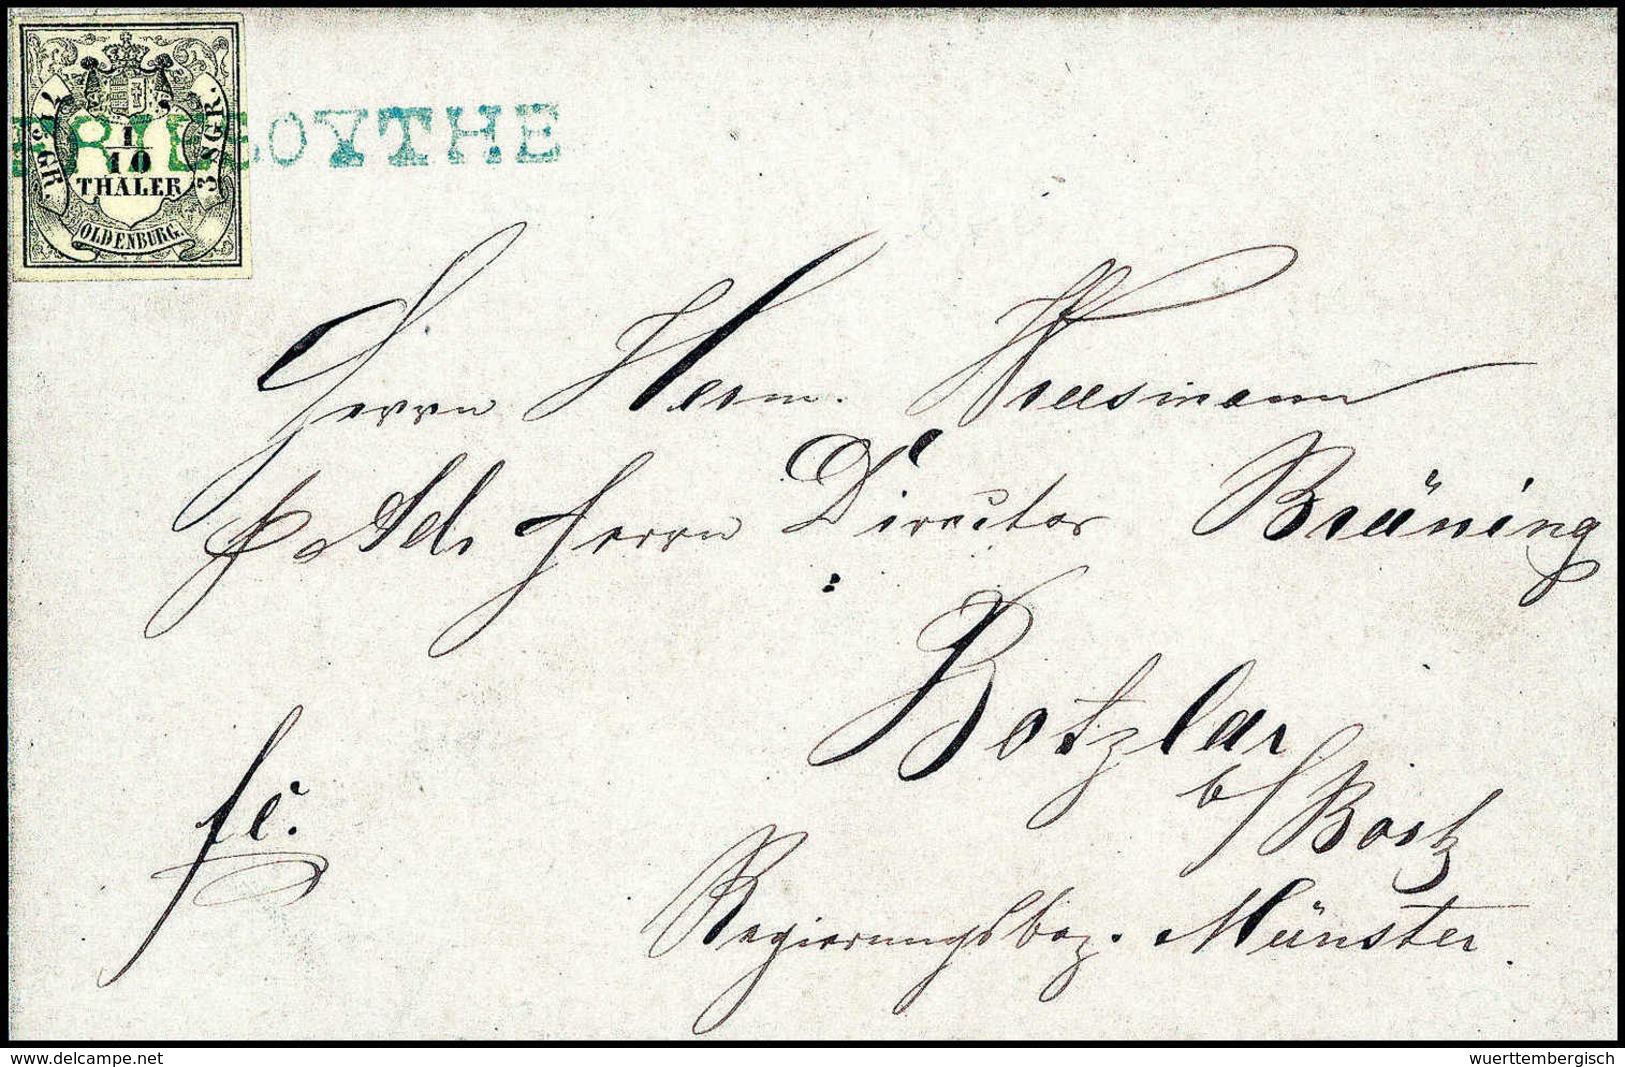 7 1/5 GR.
3 SGR.
1/10
THALER
OLDENBURG.
FRIESOYTHE
Herrn Herm. Wreesmann
p. Adr. Herrn Director Bräuning
Botzlar
b/ Bork
Regierungsbez. Münster.
fr.
www.delcampe.net
wuerttembergisch